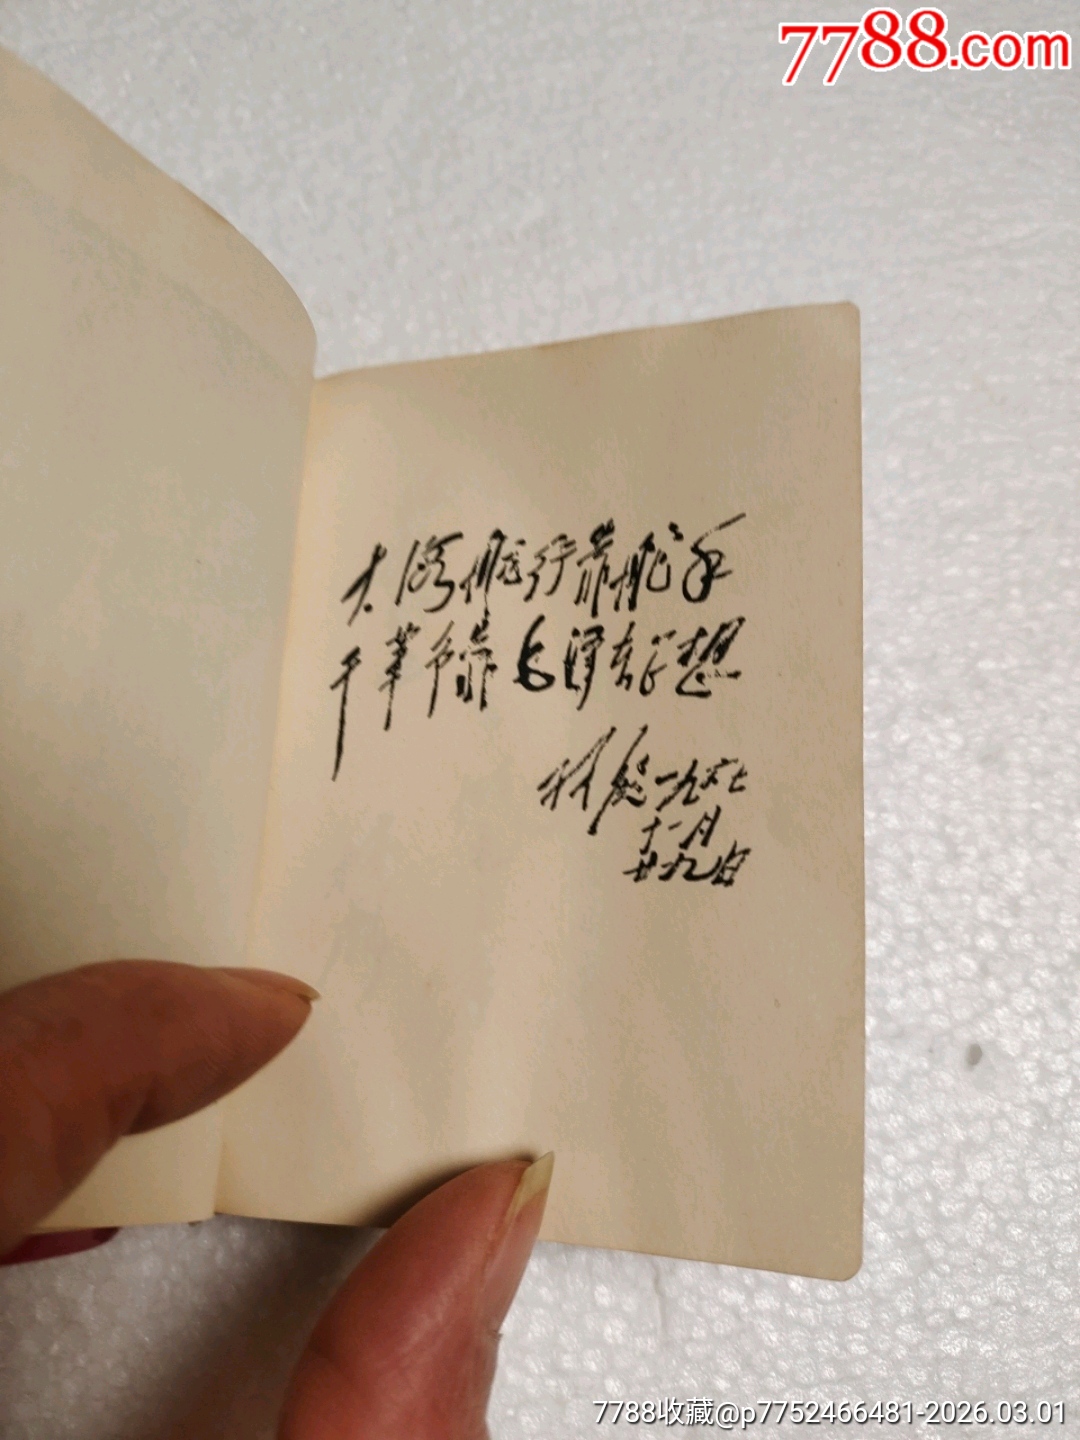 7788.com
大海航行靠舵手
干革命靠毛泽东思想
林彪一九六七
十一月
廿九日
7788收藏@p7752466481-2026.03.01